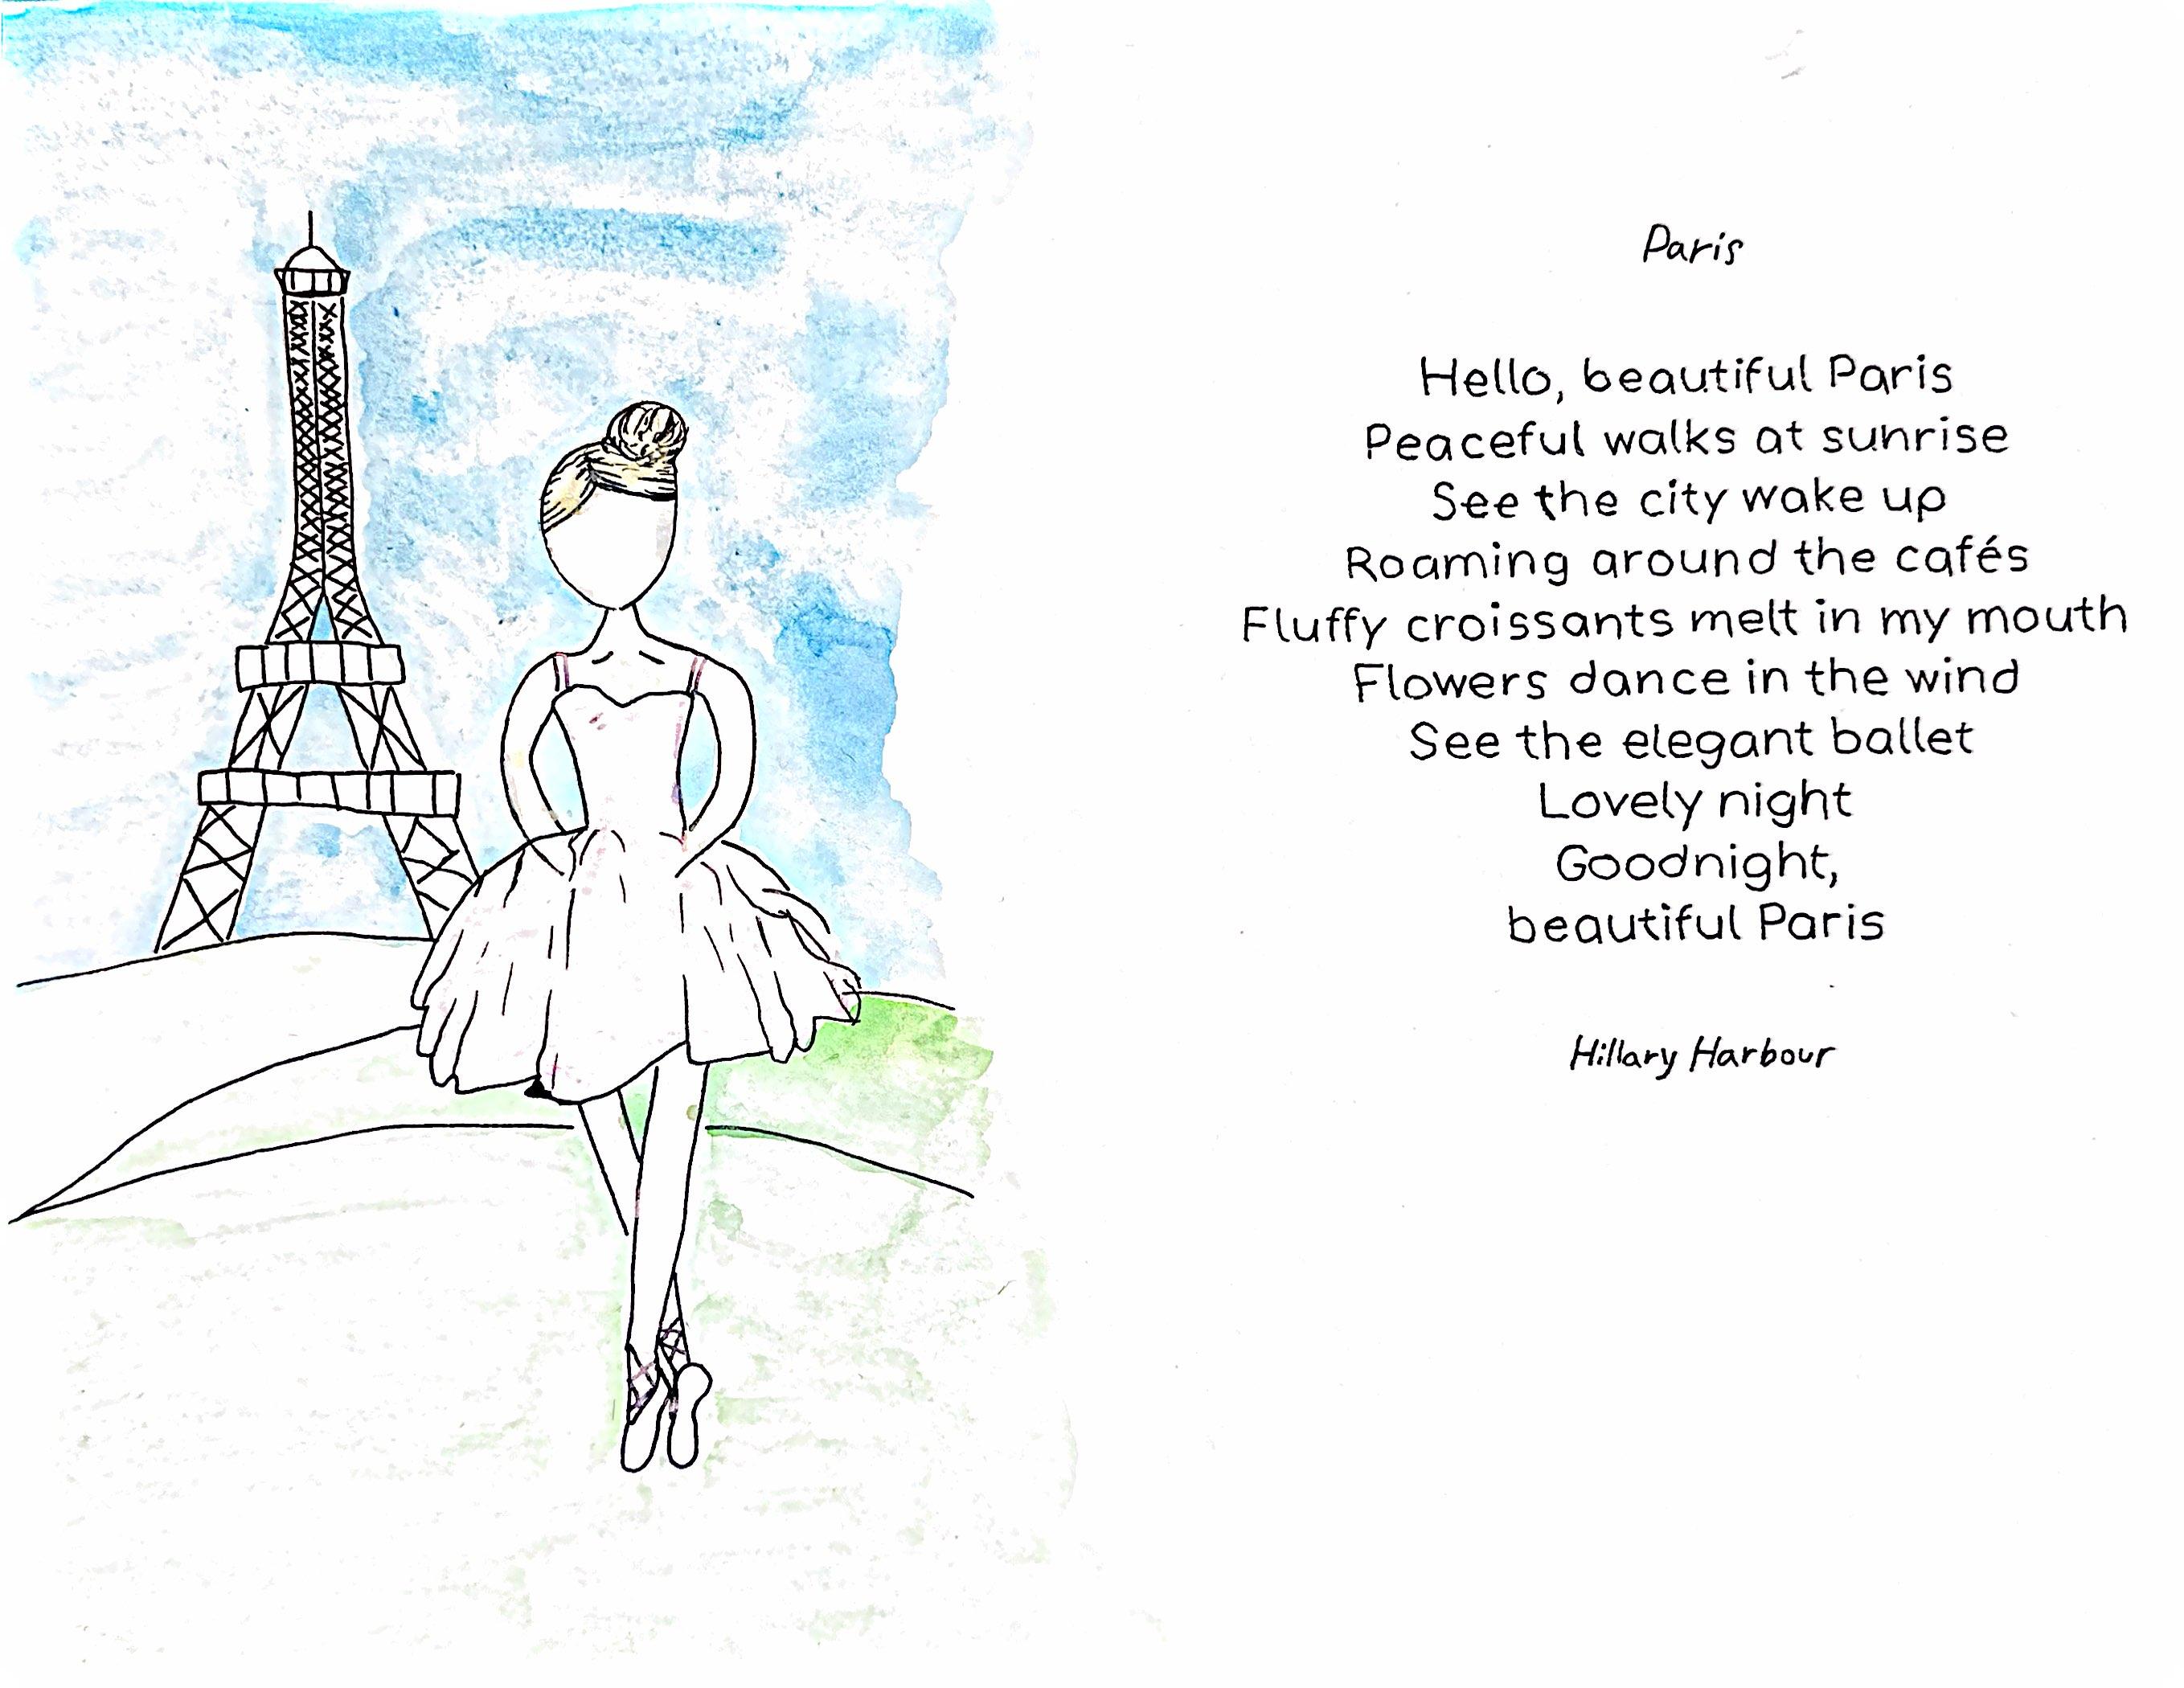 Paris
Hello, beautiful Paris
Peaceful walks at sunrise
See the city wake up
Roaming around the cafés
Fluffy croissants melt in my mouth
Flowers dance in the wind
See the elegant ballet
Lovely night
Goodnight,
beautiful Paris
Hillary Harbour